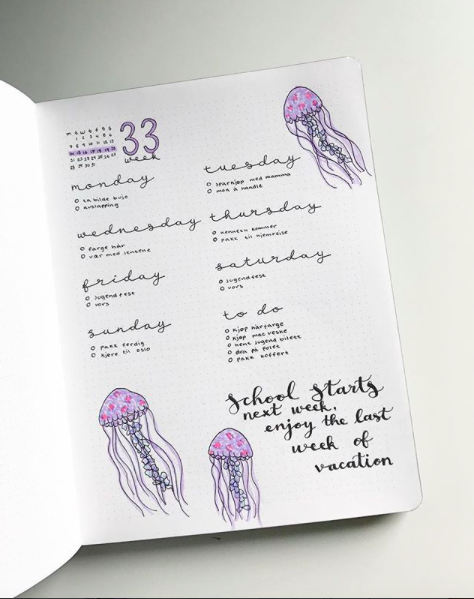 33
week
monday
ta bilde buss
avslapping
tuesday
sparkjøp med mamma
wednesday
farge hår
vær med jentene
thursday
kenneth kommer
pakk til hjemreise
friday
jugendfest
vors
saturday
jugendfest
vors
sunday
pakk ferdig
kjøre til oslo
to do
kjøp hårfarge
kjøp mac veske
hent jugend billett
dra på polet
pakk koffert
School starts
next week,
enjoy the last
week of
vacation